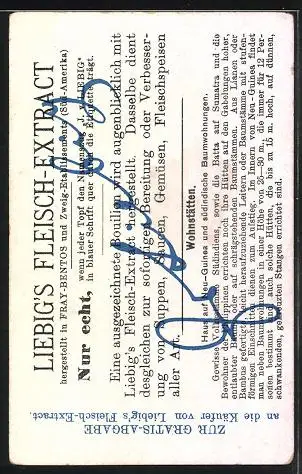 LIEBIG'S FLEISCH-EXTRACT
hergestellt in FRAY-BENTOS und Zweig-Etablissements (Süd-Amerika)
Nur echt, wenn jeder Topf den Namenszug J. v. LIEBIG
in blauer Schrift quer durch die Etiquette trägt.
Eine ausgezeichnete Bouillon wird augenblicklich mit
Liebig's Fleisch-Extract hergestellt. Dasselbe dient
desgleichen zur sofortigen Bereitung oder Verbesser-
ung von Suppen, Saucen, Gemüsen, Fleischspeisen
aller Art.
Wohnstätten.
Haus auf Neu-Guinea und südindische Baumwohnungen.
Gewisse Volksstämme Südindiens, sowie die Batta auf Sumatra und die
Bewohner der Philippinen errichten noch ihre Hütten auf den Gabelungen hoher,
entlaubter Bäume oder auf schrägstehenden Baumstämmen. Aus Lianen oder
Bambus gefertigte, leicht heraufzuziehende Leitern oder Baumstämme mit stufen-
förmigen Einschnitten dienen zum Aufstieg. Im Innern von Neu-Guinea findet
man neben Baumwohnungen in einer Höhe von 20-30 m, die immer für 12 Per-
sonen bestimmt sind, auch solche Hütten, die bis zu 15 m. hoch, auf dünnen,
schwankenden, gekreuzten Stangen errichtet sind.
ZUR GRATIS-ABGABE
an die Käufer von Liebig's Fleisch-Extract.